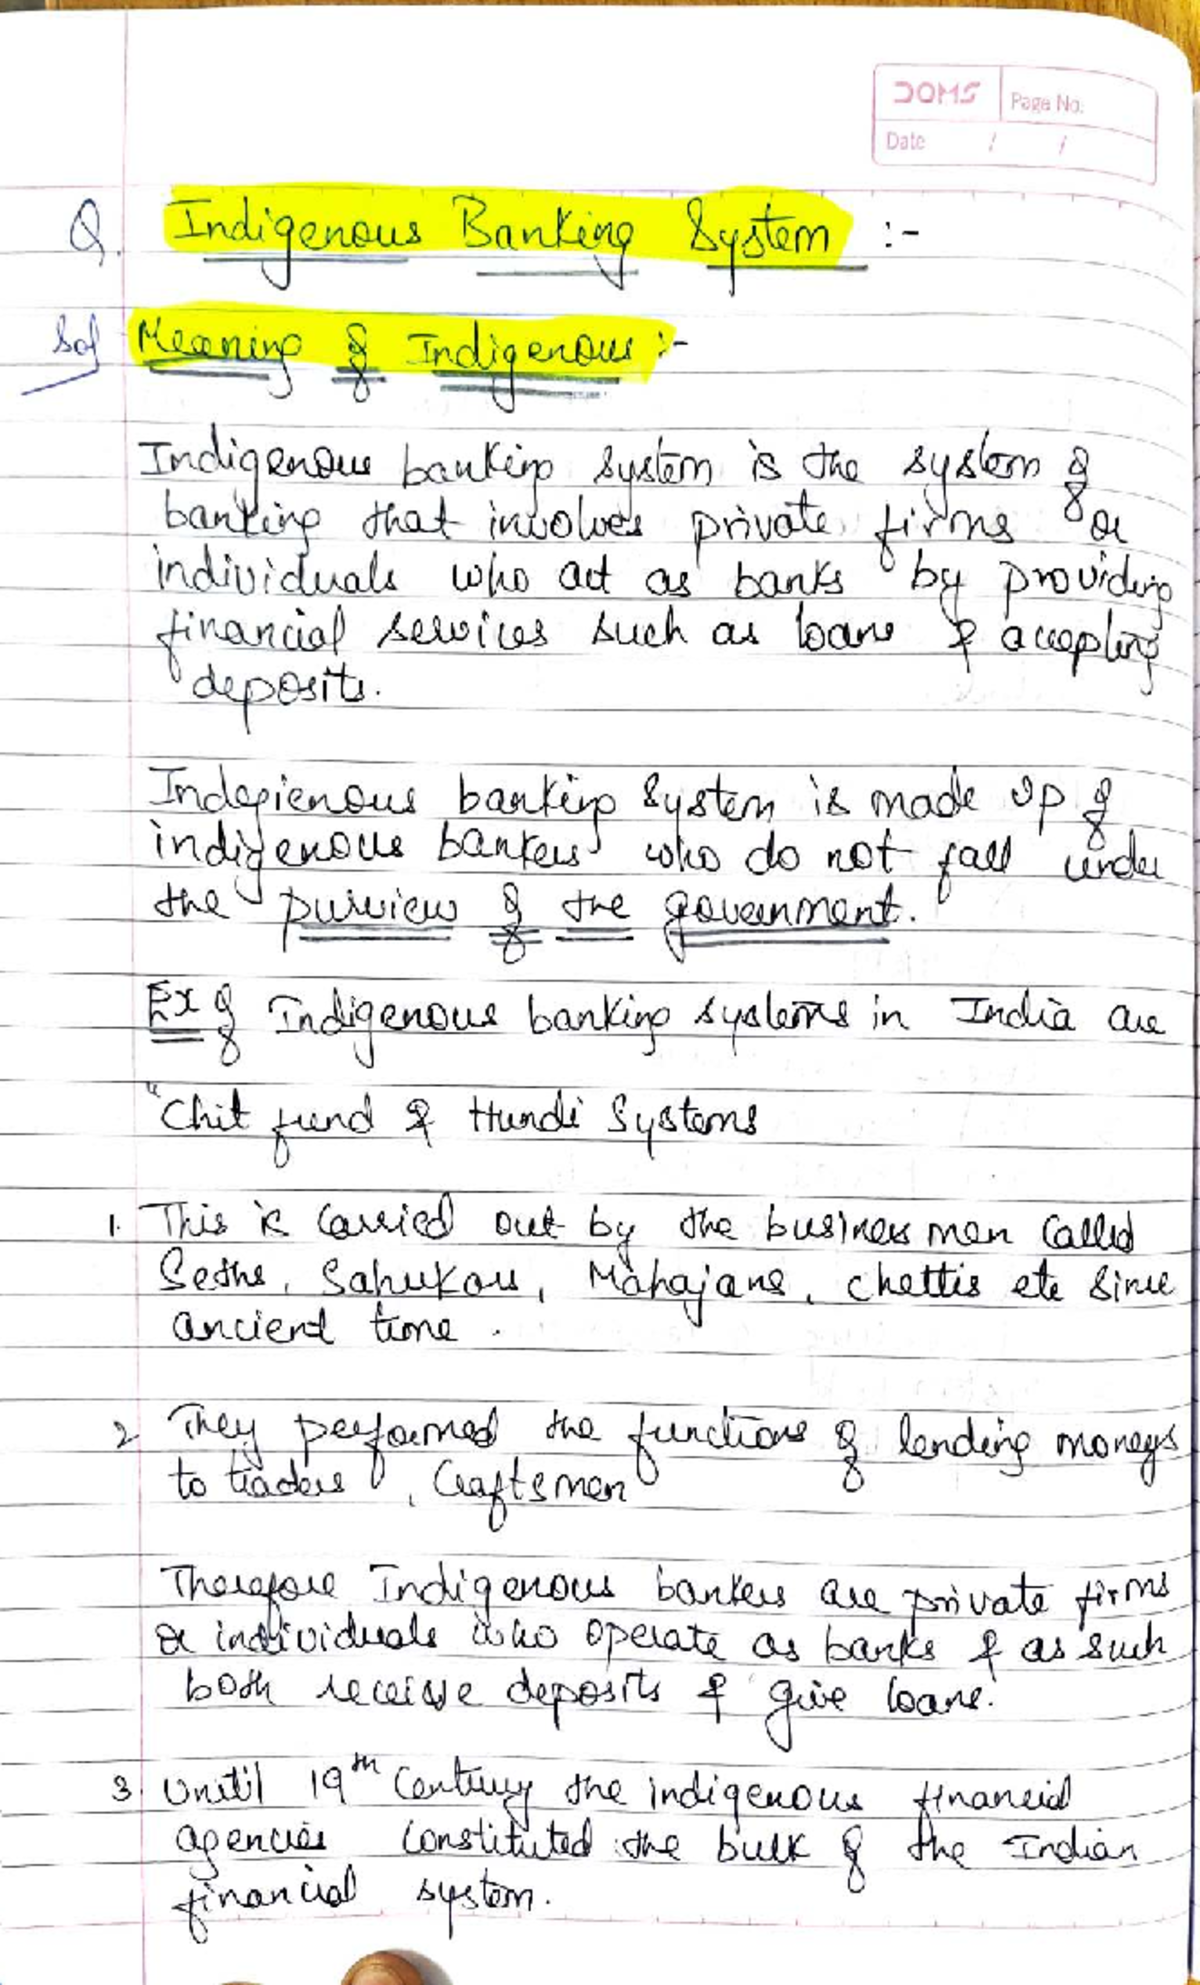 DOMS
Page No.
Date / /
Q. Indigenous Banking System :-
Sol Meaning of Indigenous :-
Indigenous banking system is the system of
banking that involves private firms or
individuals who act as banks by providing
financial services such as loans & accepting
deposits.
Indegienous banking system is made up of
indigenous bankers who do not fall under
the purview of the government.
Ex of Indigenous banking systems in India are
"Chit fund & Hundi Systems
1. This is carried out by the business men called
Seths, Sahukars, Mahajans, Chettis etc since
ancient time.
2 They performed the functions of lending moneys
to traders, Craftsmen
Therefore Indigenous bankers are private firms
or individuals who operate as banks & as such
both receive deposits & give loans.
3. Until 19th Century the indigenous financial
agencies constituted the bulk of the Indian
financial system.